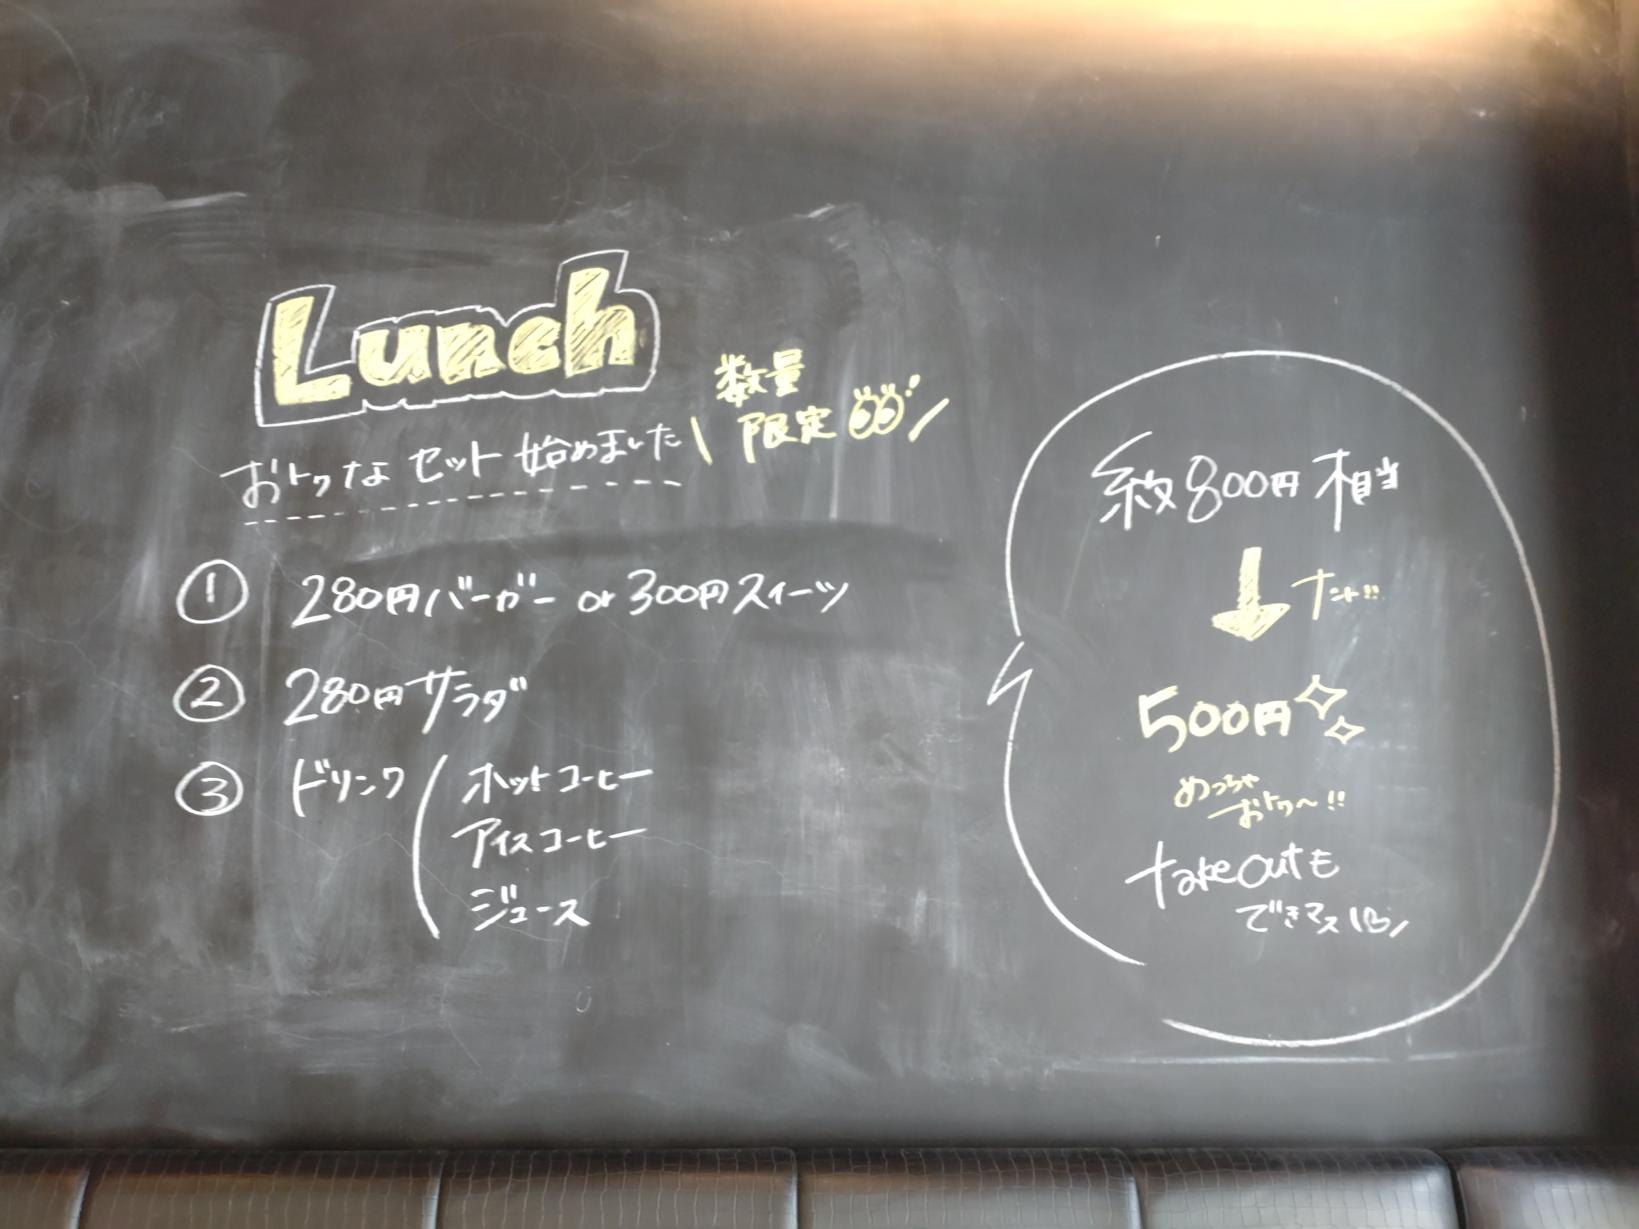 Lunch
数量
限定
おトクなセット始めました
① 280円バーガー or 300円スイーツ
② 280円サラダ
③ ドリンク
ホットコーヒー
アイスコーヒー
ジュース
約800円相当
ナント!!
500円
めっちゃ
おトク〜!!
takeoutも
できマス